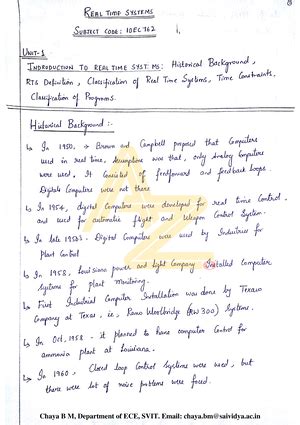 REAL TIME SYSTEMS
SUBJECT CODE: 10EC762
UNIT-1
INDRODUCTION TO REAL TIME SYSTEMS: Historical Background,
RTS Definition, Classification of Real Time Systems, Time Constraints,
Classification of Programs.
Historical Background :-
In 1950, Brown and Campbell proposed that Computers
used in real time. Assumptions was that, only Analog Computers
were used. It Consisted of feedforward and feedback loops.
Digital Computers were not there
In 1954, digital Computers were developed for real time Control.
and used for automatic flight and Weapon Control System.
In late 1950s. Digital Computers was used by Industries for
Plant Control
In 1958, Louisiana power and light Company Installed Computer
systems for plant monitoring.
First Industrial Computer Installation was done by Texaco
Company at Texas, ie, Ramo Woolbridge (RW 300) systems.
In Oct, 1958 - it planned to have computer Control for
ammonia plant at Louisiana.
In 1960, Closed loop Control Systems were used, but
there were lot of noise problems were faced.
Chaya B M, Department of ECE, SVIT. Email: chaya.bm@saividya.ac.in